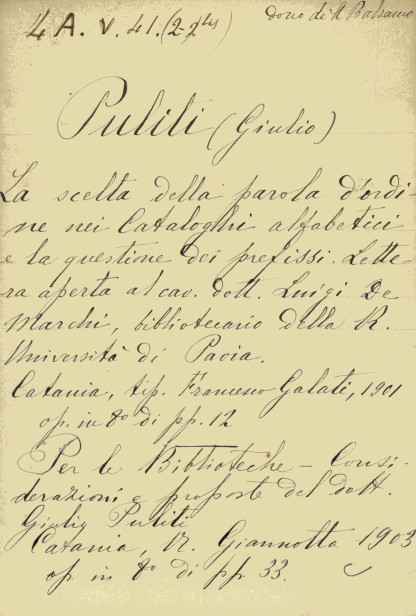 dono di A Balsamo
4 A. V. 41. (2-2bis)
Puliti (Giulio)
La scelta della parola d'ordi-
ne nei Cataloghi alfabetici
e la questione dei prefissi. Lette-
ra aperta al cav. dott. Luigi De
Marchi, bibliotecario della R.
Università di Pavia.
Catania, tip. Francesco Galati, 1901
op. in 8º di pp. 12
Per le Biblioteche – Consi-
derazioni e proposte del dott.
Giulio Puliti
Catania, N. Giannotta 1903
op. in 8º di pp. 33.